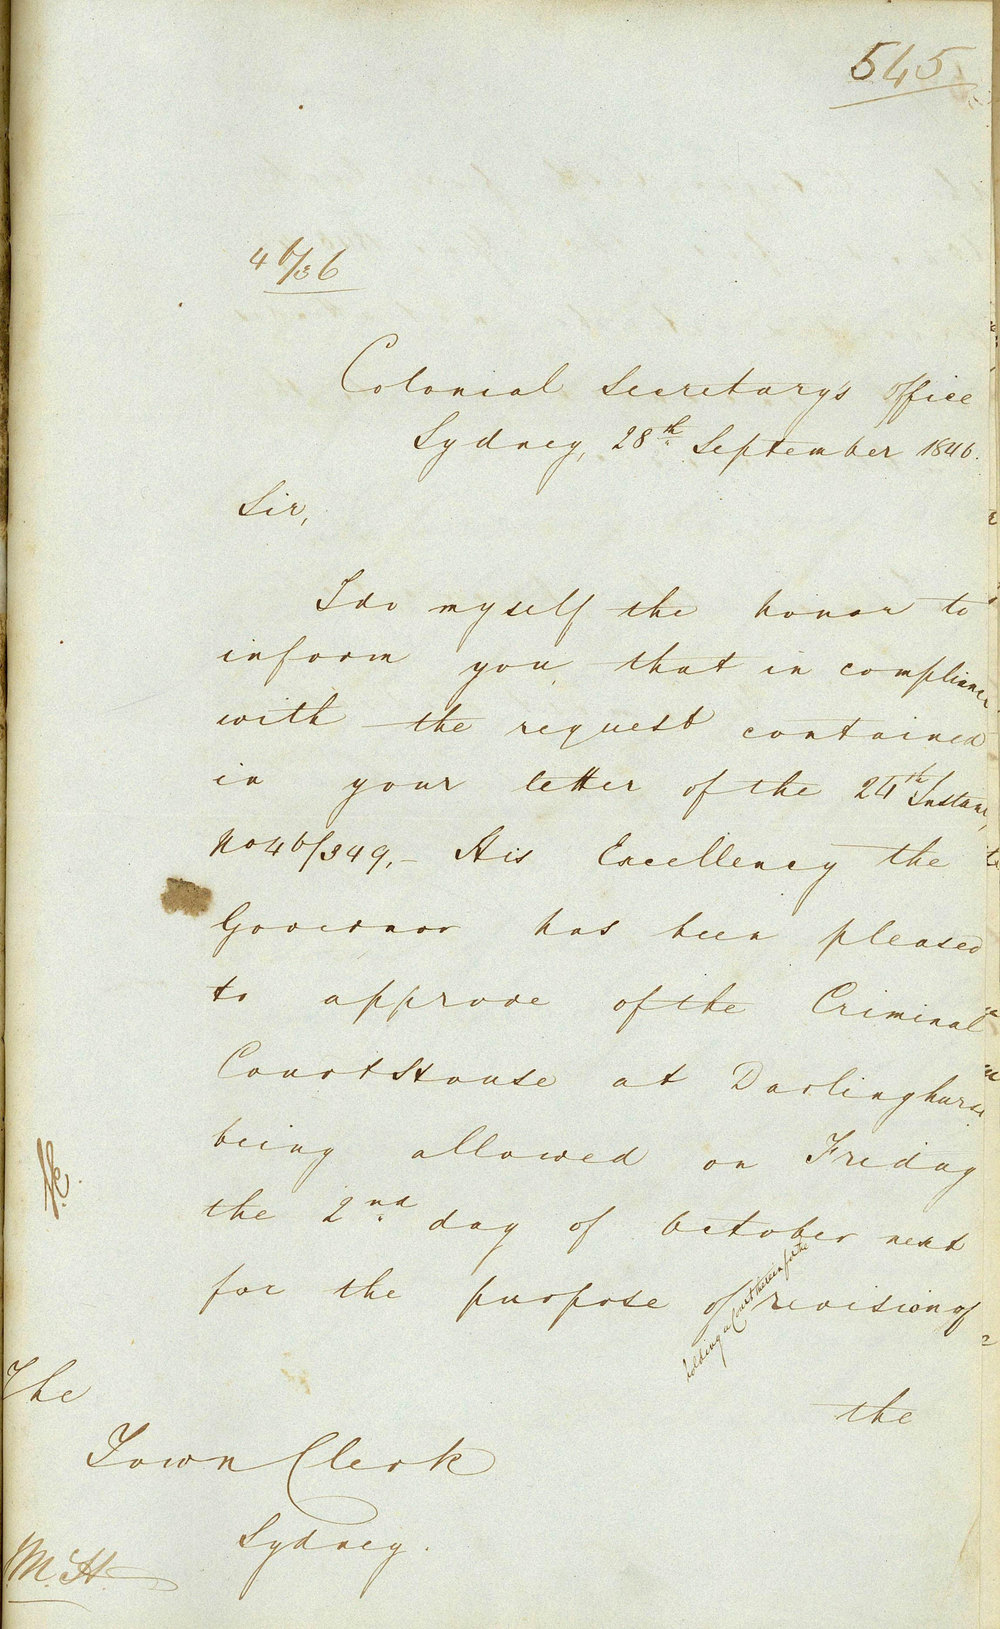 545
46/36
Colonial Secretary's Office
Sydney, 28th September 1846.
Sir,
I do myself the honor to
inform you that in compliance
with the request contained
in your letter of the 24th Instant,
No 46/349,- His Excellency the
Governor has been pleased
to approve of the Criminal
Court House at Darlinghurst
being allowed on Friday
the 2nd day of October next
for the purpose of holding a Court therein for the revision of
the
The
Town Clerk
Sydney.
M.H.